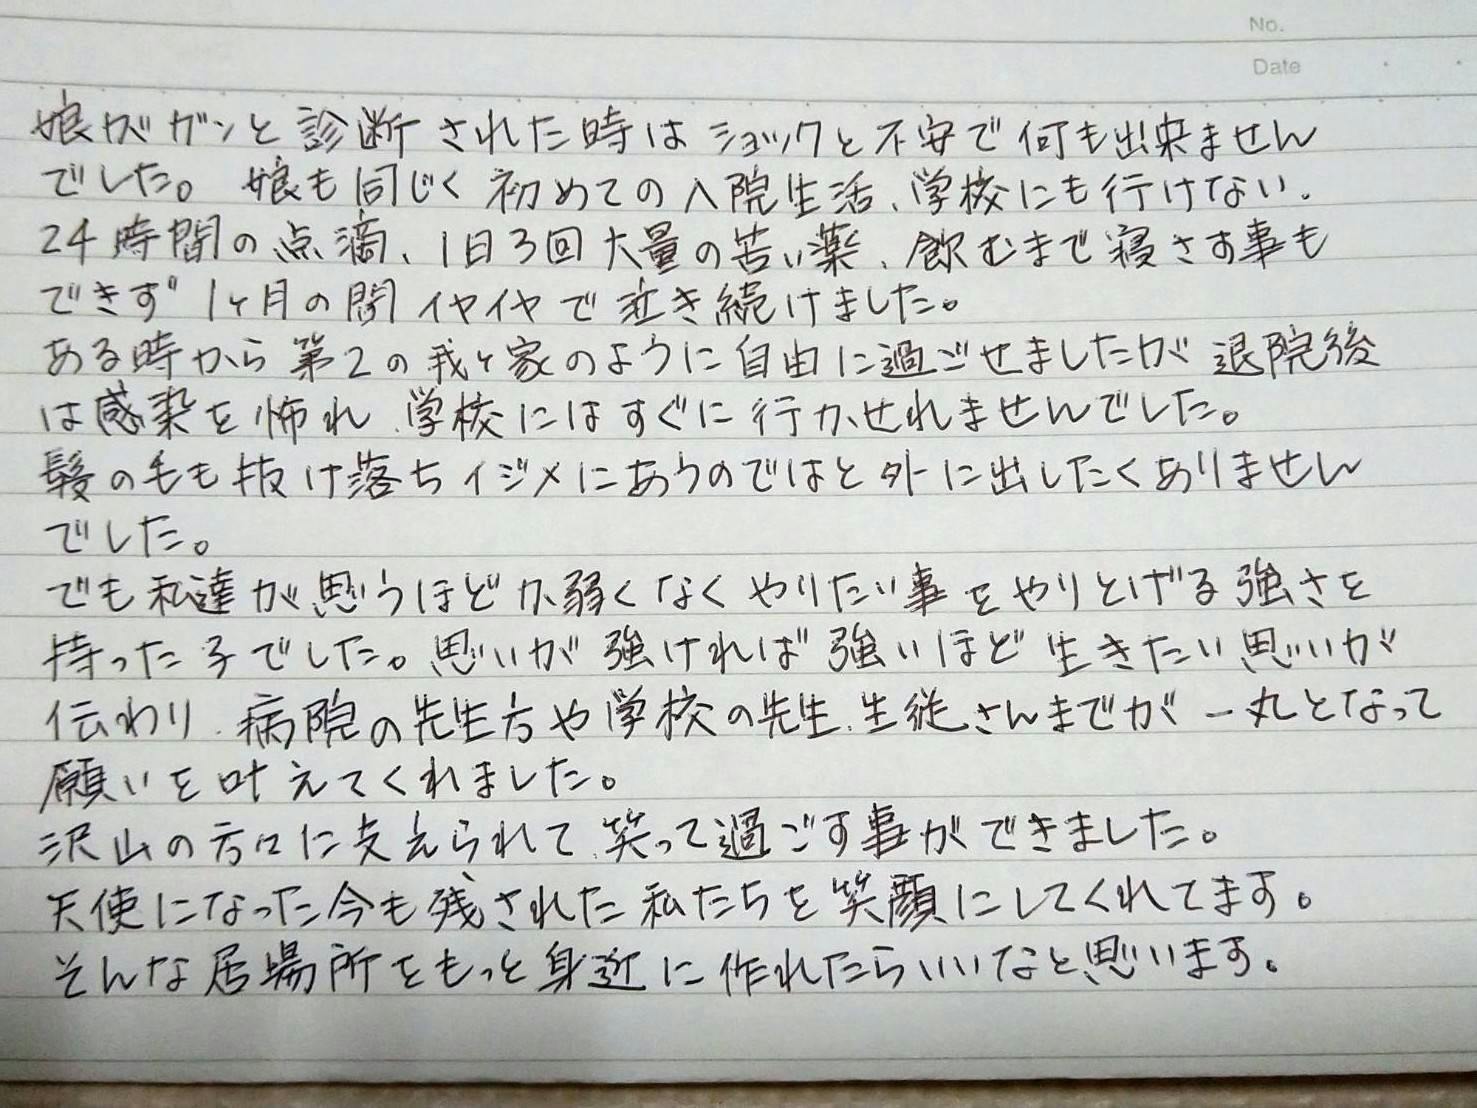 No.
Date
娘がガンと診断された時はショックと不安で何も出来ません
でした。娘も同じく初めての入院生活、学校にも行けない、
24時間の点滴、1日3回大量の苦い薬、飲むまで寝さす事も
できず 1ヶ月の間イヤイヤで泣き続けました。
ある時から第2の我が家のように自由に過ごせましたが退院後
は感染を怖れ、学校にはすぐに行かせれませんでした。
髪の毛も抜け落ちイジメにあうのではと外に出したくありません
でした。
でも私達が思うほどか弱くなくやりたい事をやりとげる強さを
持った子でした。思いが強ければ強いほど生きたい思いが
伝わり、病院の先生方や学校の先生、生徒さんまでが一丸となって
願いを叶えてくれました。
沢山の方々に支えられて、笑って過ごす事ができました。
天使になった今も残された私たちを笑顔にしてくれてます。
そんな居場所をもっと身近に作れたらいいなと思います。